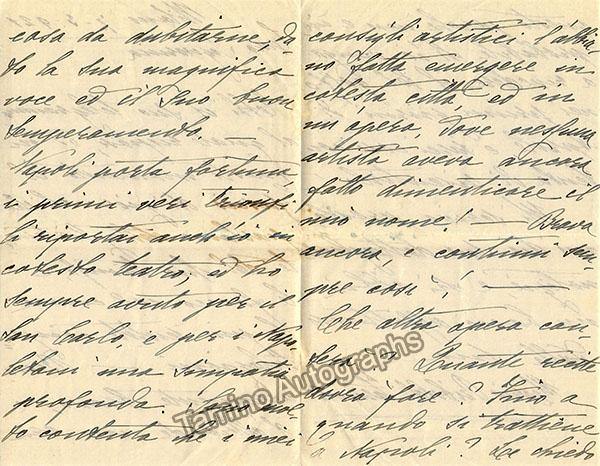 cosa da dubitarne, da-
to la sua magnifica
voce ed il Suo buon
temperamento. —
Napoli porta fortuna,
i primi veri trionfi
li riportai anch'io in
cotesto teatro; ed ho
sempre avuto per il
San Carlo, e per i Napo-
letani una simpatia
profonda. Son mol-
to contenta che i miei
consigli artistici l'abbia-
no fatta emergere in
cotesta città, ed in
un'opera, dove nessuna
artista aveva ancora
fatto dimenticare il
mio nome! — Brava
ancora, e continui sem-
pre così! —
Che altra opera can-
terà — Quante recite
dovrà fare? Fino a
quando si trattiene
a Napoli? La chiedo
Tamino Autographs